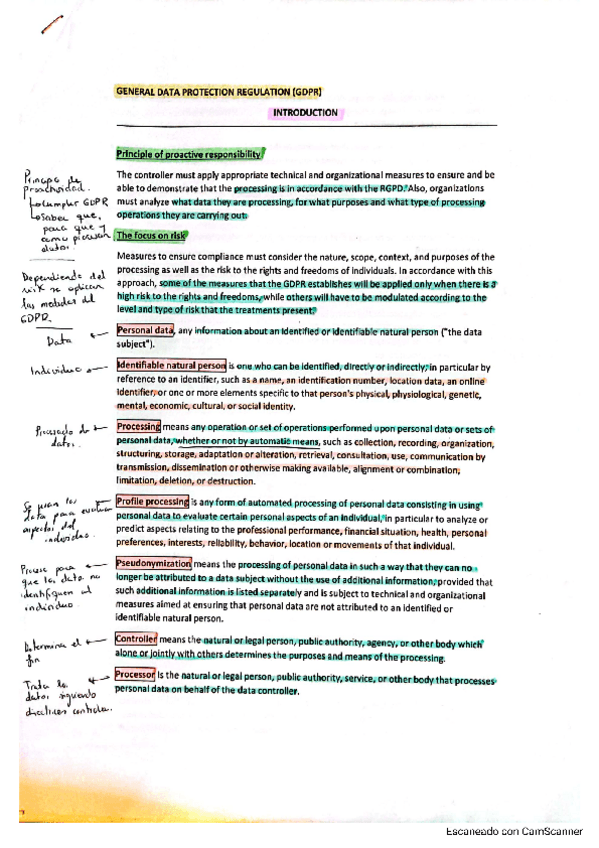 GENERAL DATA PROTECTION REGULATION (GDPR)
INTRODUCTION
Principle of proactive responsibility
The controller must apply appropriate technical and organizational measures to ensure and be
able to demonstrate that the processing is in accordance with the RGPD. Also, organizations
must analyze what data they are processing, for what purposes and what type of processing
operations they are carrying out.
Principio de
Proactividad.
cumplir GDPR
saber que,
para que y
como procesan
datos.
The focus on risk
Measures to ensure compliance must consider the nature, scope, context, and purposes of the
processing as well as the risk to the rights and freedoms of individuals. In accordance with this
approach, some of the measures that the GDPR establishes will be applied only when there is a
high risk to the rights and freedoms, while others will have to be modulated according to the
level and type of risk that the treatments present.
Dependiendo del
risk se aplican
las medidas del
GDPR.
Personal data, any information about an identified or identifiable natural person ("the data
subject").
Data
Identifiable natural person is one who can be identified, directly or indirectly, in particular by
reference to an identifier, such as a name, an identification number, location data, an online
identifier, or one or more elements specific to that person's physical, physiological, genetic,
mental, economic, cultural, or social identity.
Individuo
Processing means any operation or set of operations performed upon personal data or sets of
personal data, whether or not by automatic means, such as collection, recording, organization,
structuring, storage, adaptation or alteration, retrieval, consultation, use, communication by
transmission, dissemination or otherwise making available, alignment or combination,
limitation, deletion, or destruction.
Procesado de
datos.
Profile processing is any form of automated processing of personal data consisting in using
personal data to evaluate certain personal aspects of an individual, in particular to analyze or
predict aspects relating to the professional performance, financial situation, health, personal
preferences, interests, reliability, behavior, location or movements of that individual.
Se usan los
data para evaluar
aspectos del
individuo.
Pseudonymization means the processing of personal data in such a way that they can no
longer be attributed to a data subject without the use of additional information, provided that
such additional information is listed separately and is subject to technical and organizational
measures aimed at ensuring that personal data are not attributed to an identified or
identifiable natural person.
Proceso para
que los datos no
identifiquen al
individuo
Controller means the natural or legal person, public authority, agency, or other body which
alone or jointly with others determines the purposes and means of the processing.
Determina el
fin
Processor is the natural or legal person, public authority, service, or other body that processes
personal data on behalf of the data controller.
Trata los
datos siguiendo
directrices
Escaneado con CamScanner